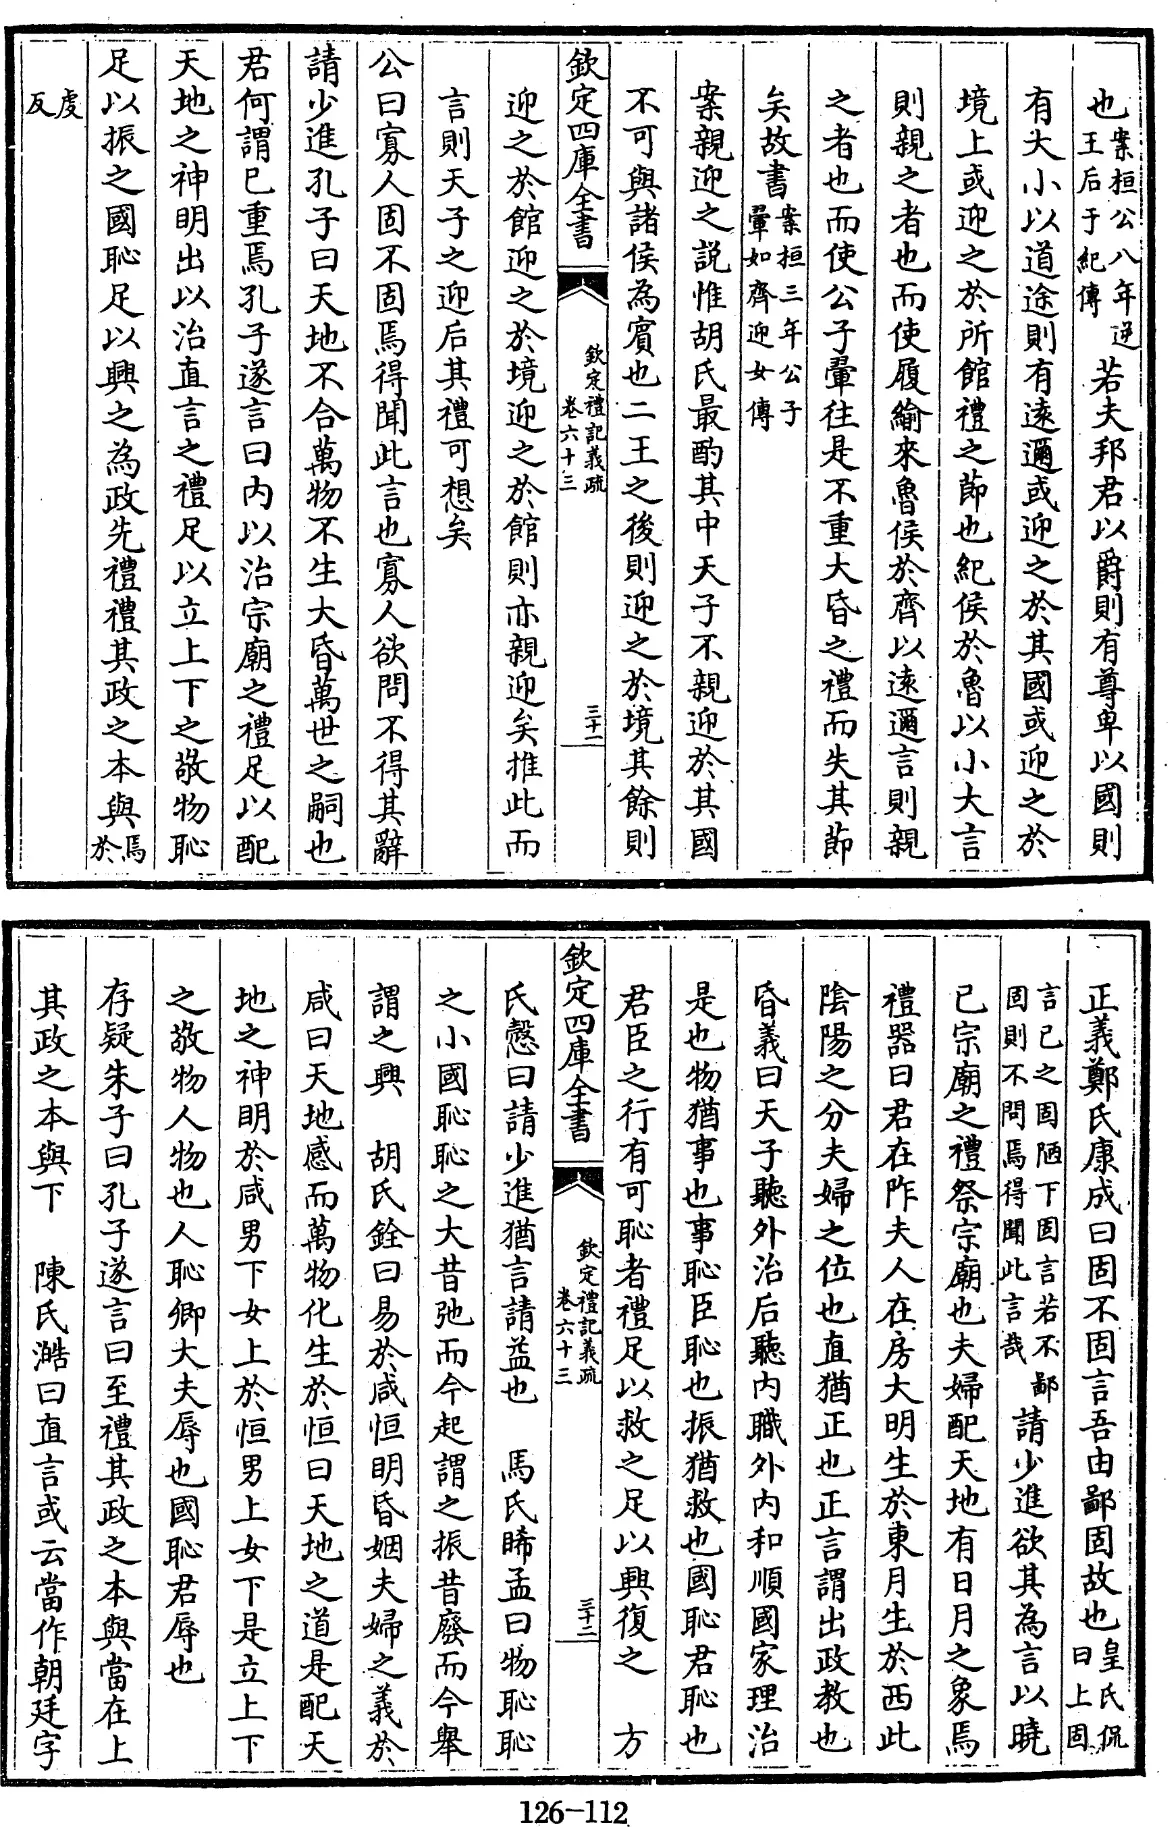 也案桓公八年逆王后于紀傳若夫邦君以爵則有尊卑以國則
有大小以道途則有遠邇或迎之於其國或迎之於
境上或迎之於所館禮之節也紀侯於魯以小大言
則親之者也而使履緰來魯侯於齊以遠邇言則親
之者也而使公子翬往是不重大昏之禮而失其節
矣故書案桓三年公子翬如齊迎女傳
案親迎之說惟胡氏最酌其中天子不親迎於其國
不可與諸侯為賓也二王之後則迎之於境其餘則
欽定四庫全書
欽定禮記義疏
卷六十三
三十一
迎之於館迎之於境迎之於館則亦親迎矣推此而
言則天子之迎后其禮可想矣
公曰寡人固不固焉得聞此言也寡人欲問不得其辭
請少進孔子曰天地不合萬物不生大昏萬世之嗣也
君何謂已重焉孔子遂言曰內以治宗廟之禮足以配
天地之神明出以治直言之禮足以立上下之敬物恥
足以振之國恥足以興之為政先禮禮其政之本與焉於
虔反
正義鄭氏康成曰固不固言吾由鄙固故也皇氏侃曰上固
言已之固陋下固言若不鄙固則不問焉得聞此言哉請少進欲其為言以曉
已宗廟之禮祭宗廟也夫婦配天地有日月之象焉
禮器曰君在阼夫人在房大明生於東月生於西此
陰陽之分夫婦之位也直猶正也正言謂出政教也
昏義曰天子聽外治后聽內職外內和順國家理治
是也物猶事也事恥臣恥也振猶救也國恥君恥也
君臣之行有可恥者禮足以救之足以興復之　方
欽定四庫全書
欽定禮記義疏
卷六十三
三十二
氏慤曰請少進猶言請益也　馬氏睎孟曰物恥恥
之小國恥恥之大昔弛而今起謂之振昔廢而今舉
謂之興　胡氏銓曰易於咸恒明昏姻夫婦之義於
咸曰天地感而萬物化生於恒曰天地之道是配天
地之神明於咸男下女上於恒男上女下是立上下
之敬物人物也人恥卿大夫辱也國恥君辱也
存疑朱子曰孔子遂言曰至禮其政之本與當在上
其政之本與下　陳氏澔曰直言或云當作朝廷字
126-112